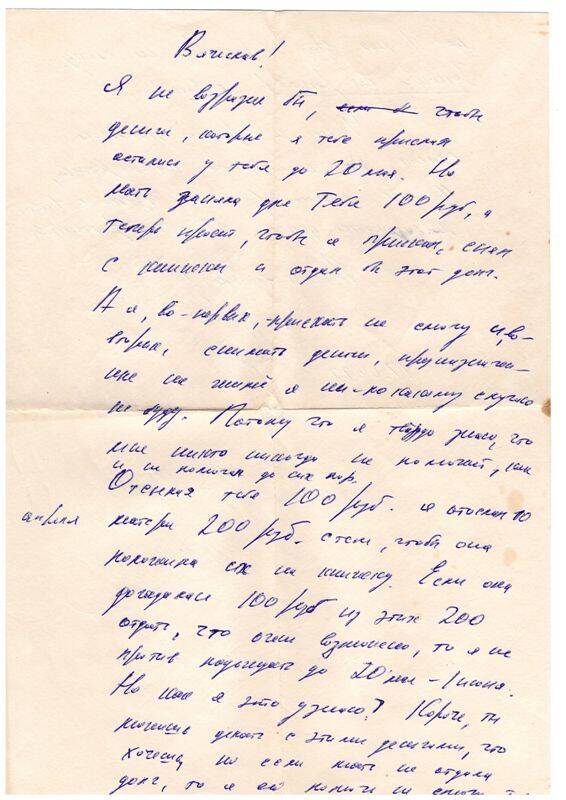 Вячеслав!
Я не возражаю бы, чтобы
деньги, которые я тебе прислал
остались у тебя до 20 мая. Но
мать заняла для тебя 100 руб, и
теперь просит, чтобы я приехал, снял
с книжки и отдал бы этот долг.
А я, во-первых, приехать не смогу и, во-
вторых, снимать деньги, предназначен-
ные на жильё я ни по какому случаю
не буду. Потому что я твёрдо знаю, что
мне никто никогда не поможет, как
и не помогал до сих пор.
Отсылая тебе 100 руб. я отослал 10
апреля
матери 200 руб. с тем, чтобы она
положила их на книжку. Если она
догадалась 100 руб из этих 200
отдать, что очень возможно, то я не
против подождать до 20 мая - 1 июня.
Но как я это узнаю? Короче, ты
можешь делать с этими деньгами, что
хочешь, но если мать не отдала
долг, то я ей